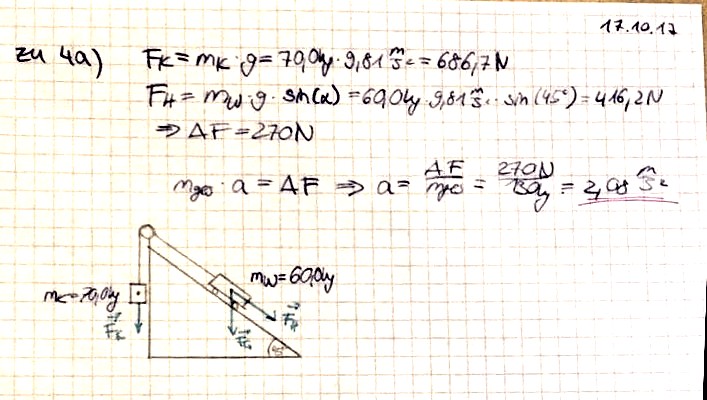 17.10.17
zu 4a) F_K = m_K · g = 70,0kg · 9,81 m/s² = 686,7N
F_H = m_W · g · sin(α) = 60,0kg · 9,81 m/s² · sin(45°) = 416,2N
⇒ ΔF = 270N
m_ges · a = ΔF ⇒ a = ΔF/m_ges = 270N/130kg = 2,08 m/s²
m_W = 60,0kg
m_K = 70,0kg
F_K
F_G
F_H
45°